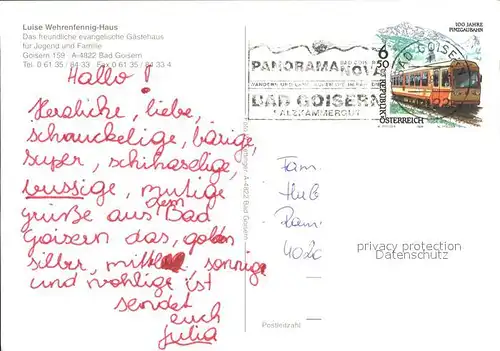 Luise Wehrenfennig-Haus
Das freundliche evangelische Gästehaus
für Jugend und Familie
Goisern 159 · A-4822 Bad Goisern
Tel. 0 61 35 / 84 33 Fax 0 61 35 / 84 33 4
Hallo!
Herzliche, liebe,
schauckelige, bärige,
super, schihaselige,
bussige, mutige
grüße aus dem Bad
Goisern das, golden
silber, sonnige
und wohlige ist
sendet
euch
Julia
A-4822 Bad Goisern
PANORAMA NOVA
BAD GOISERN
SALZKAMMERGUT
BAD GOISERN
6
50
100 JAHRE
PINZGAUBAHN
REPUBLIK
ÖSTERREICH
Fam.
Huß
4020
privacy protection
Datenschutz
Postleitzahl